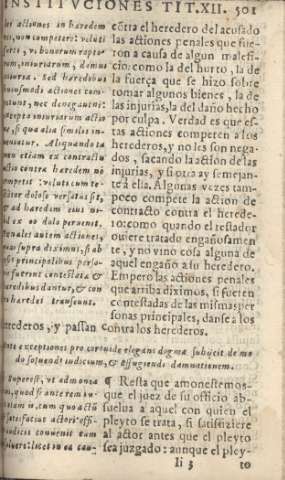 INSTITVCIONES TIT.XII. 501
les actiones in hæredem
non competere: veluti
furti, vi bonorum rapto-
rum, iniuriarum, damni
iniuriæ. Sed hæredibus
huiusmodi actiones com-
petunt, nec denegantur:
excepta iniuriarum actio
ne, & si qua alia similis in-
ueniatur. Aliquando ta
men etiam ex contractu
actio contra hæredem nõ
competit: veluti cum te-
stator dolose versatus sit,
& ad hæredem eius ni-
hil ex eo dolo peruenit.
penales autem actiones,
quas supra diximus, si ab
ipsis principalibus perso-
nis fuerint contestatæ &
hæredibus dantur, & con
tra hæredes transeunt.
cõtra el heredero del acusado
las actiones penales que fue-
ron a causa de algun malefi-
cio: como la del hurto, la de
la fuerça que se hizo sobre
tomar algunos bienes, la de
las injurias, la del daño hecho
por culpa. Verdad es que es-
tas actiones competen a los
herederos, y no les son nega-
dos, sacando la actiõn de las
injurias, y si otra ay semejan-
te a ella. Algunas vezes tam-
poco compete la action de
contracto contra el herede-
ro: como quando el testador
quiere tratado engañosamen
te, y no vino cosa alguna de
aquel engaño a su heredero.
Empero las actiones penales
que arriba diximos, si fueren
contestadas de las mismas per
sonas principales, danse a los
herederos, y passan contra los herederos.
ante exceptiones pro coronide elegans dogma subijcit de mo
do soluendi iudicium, & effugiendi damnationem.
Superest, vt admonea
mus, quod si ante rem iu-
dicatam is, cum quo actũ
satisfaciat actori: offi-
iudicis conuenit eum
absoluere: licet in ea cau-
¶ Resta que amonestemos-
que el juez de su oficio ab-
suelua a aquel con quien el
pleyto se trata, si satisfiziere
al actor antes que el pleyto
sea juzgado: aunque el pley-
Ii 3 to